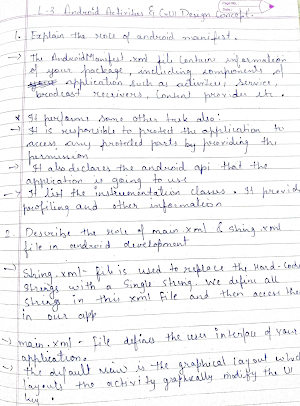 L-3 Android Activities & GUI Design Concept.
1. Explain the role of android manifest.
→ The AndroidManifest.xml file contains information
of your package, including components of
application such as activities, service,
broadcast receivers, Content provider etc.
* It performs some other task also:
→ It is responsible to protect the application to
access any protected parts by providing the
permission
→ It also declares the android api that the
application is going to use
→ It list the instrumentation classes. It provide
profiling and other information
2. Describe the role of main.xml & string.xml
file in android development
→ String.xml - file is used to replace the Hard-Code
Strings with a Single string. We define all
Strings in this xml file and then access the
in our app
→ main.xml - file defines the user interface of your
application.
→ The default view is the graphical layout which
layouts the activity graphically modify the UI